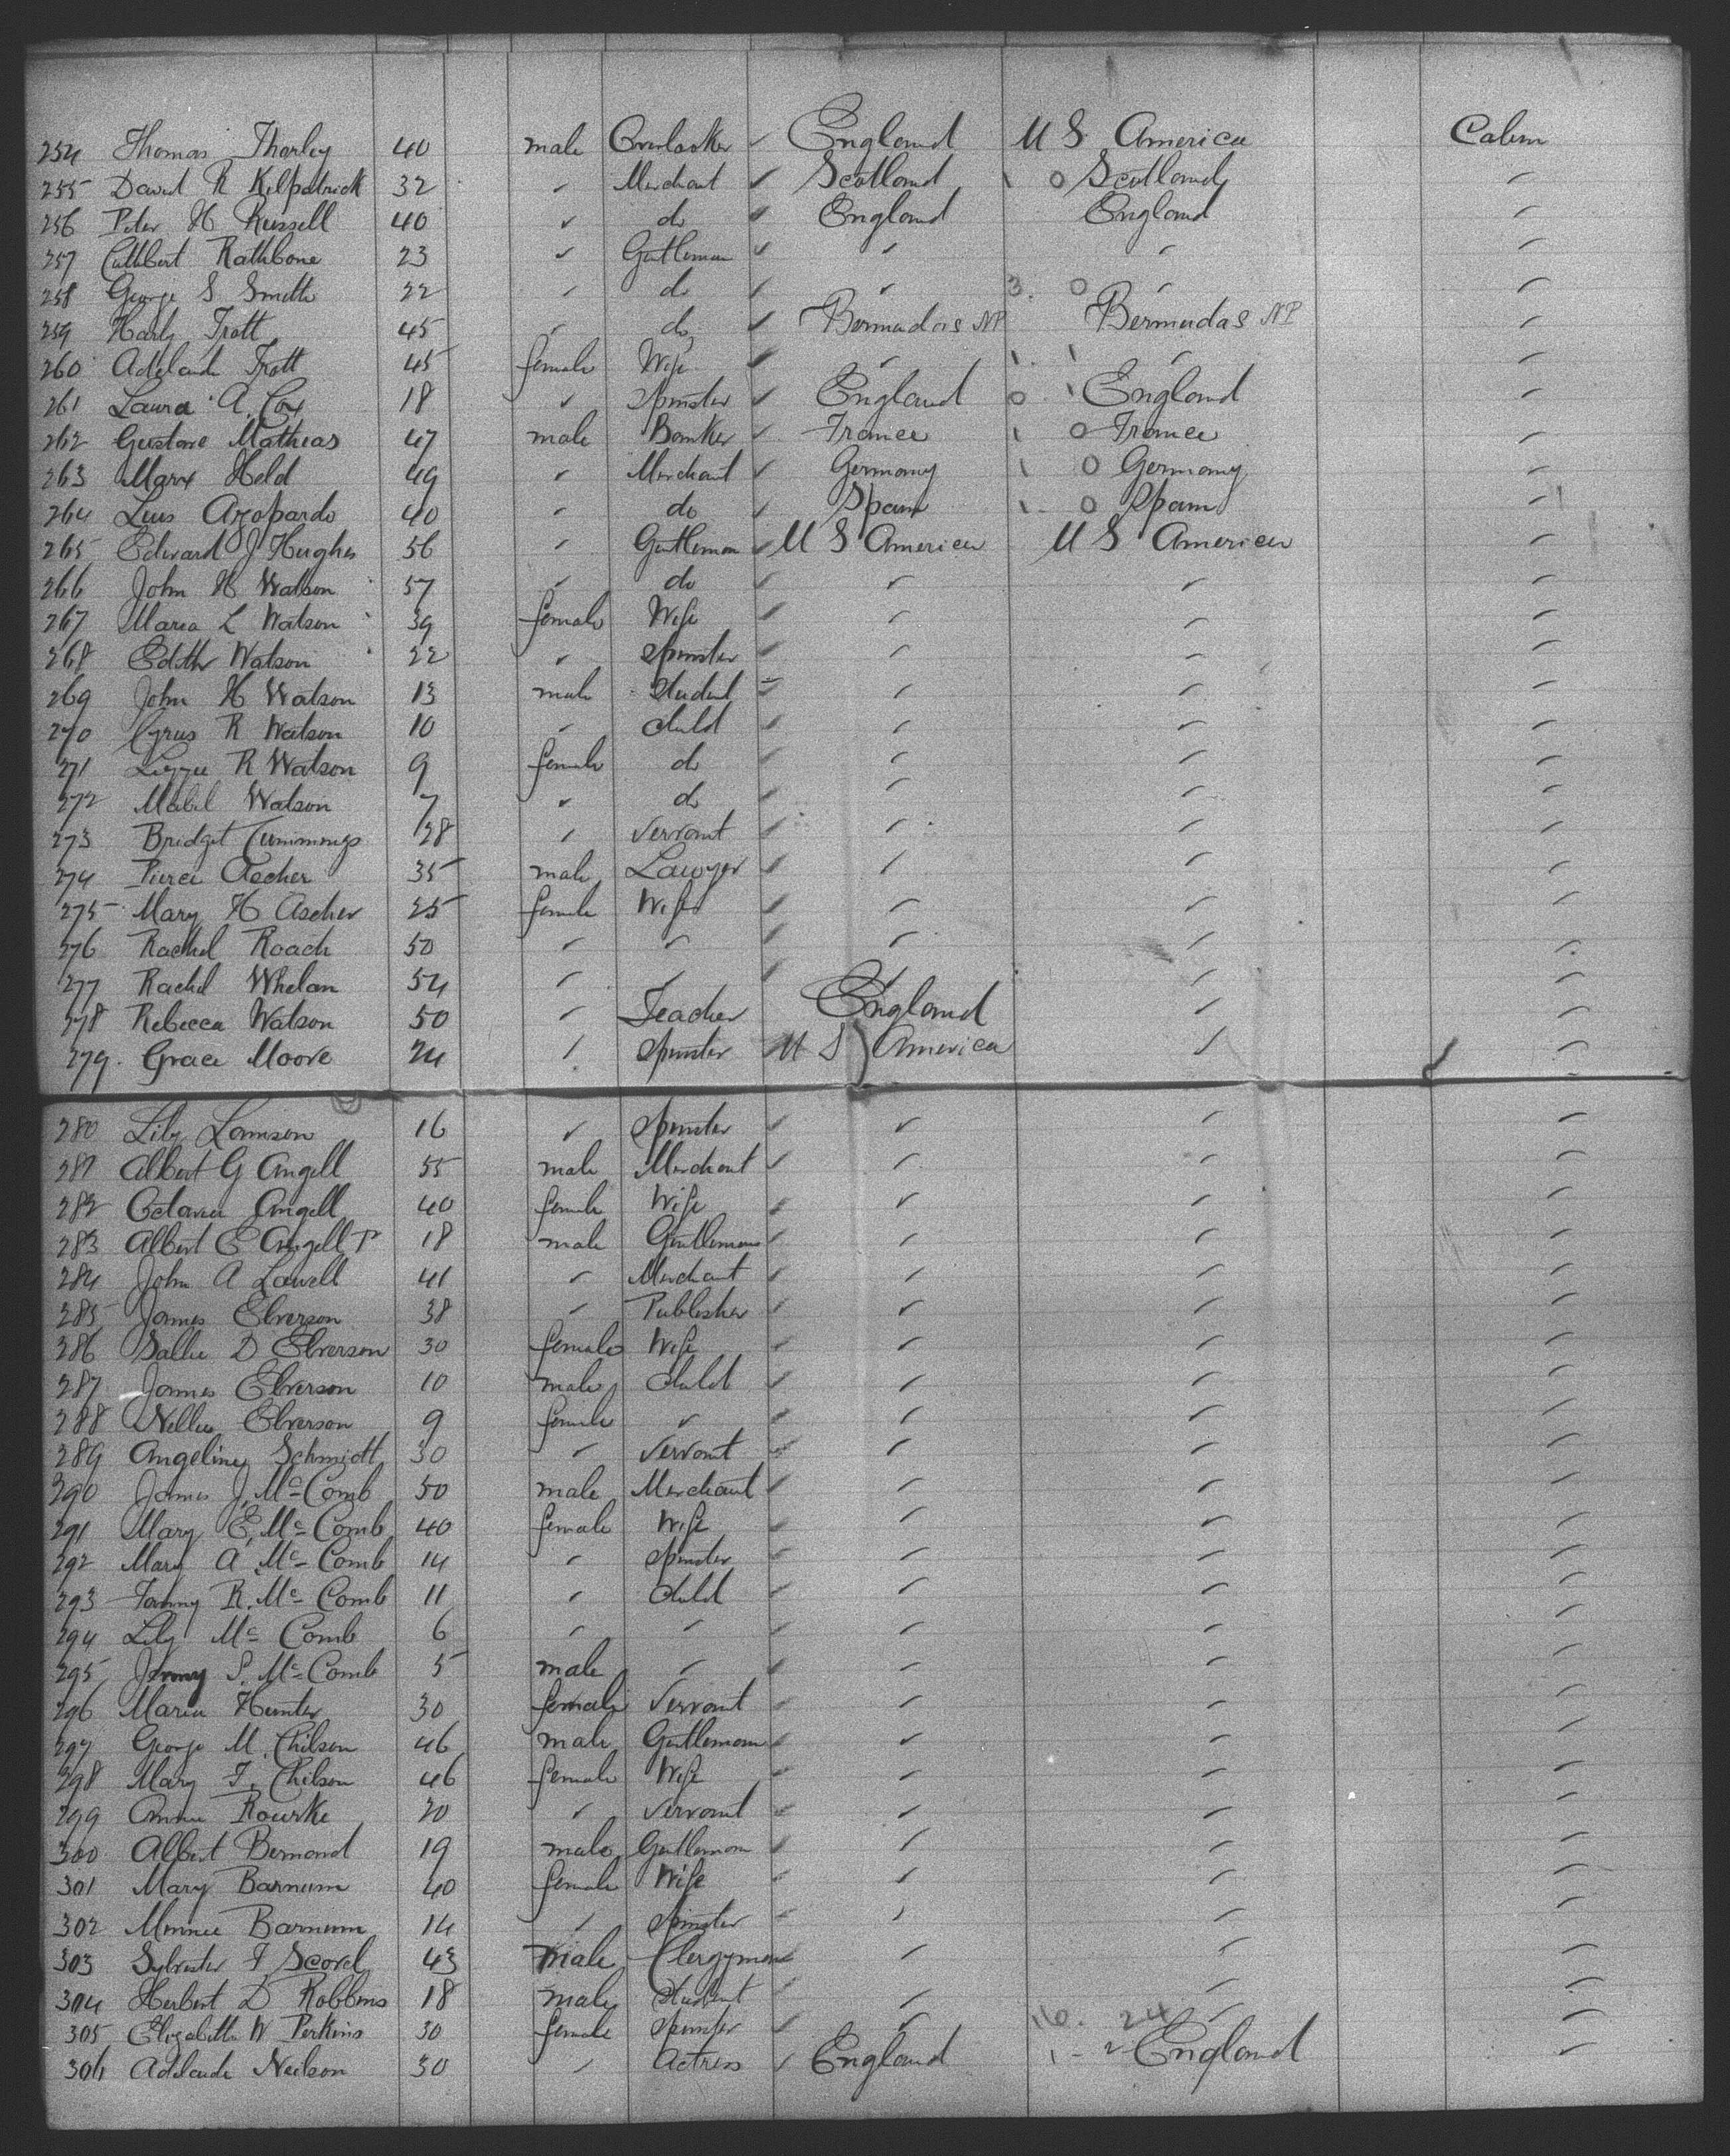 254 Thomas Thorley 40 male Overlooker ✓ England U S America Cabin
255 David R Kilpatrick 32 ✓ Merchant ✓ Scotland 1 0 Scotland ✓
256 Peter H Russell 40 ✓ do ✓ England England ✓
257 Cuthbert Rathbone 23 ✓ Gentleman ✓ ✓ ✓ ✓
258 George S Smith 22 ✓ do ✓ ✓ 3. 0 ✓ ✓
259 Harly Trott 45 ✓ do ✓ Bermudas NP Bermudas NP ✓
260 Adelaide Trott 45 female Wife ✓ ✓ 1. 1 ✓ ✓
261 Laura A. Cox 18 ✓ Spinster ✓ England 0 1 England ✓
262 Gustave Mathias 47 male Banker ✓ France 1 0 France ✓
263 Marx Held 49 ✓ Merchant ✓ Germany 1 0 Germany ✓
264 Luis Azopardo 40 ✓ do ✓ Spain 1. 0 Spain ✓
265 Edward J Hughes 56 ✓ Gentleman ✓ U S America U S America ✓
266 John H Watson 57 ✓ do ✓ ✓ ✓ ✓
267 Maria L Watson 39 female Wife ✓ ✓ ✓ ✓
268 Edith Watson 22 ✓ Spinster ✓ ✓ ✓ ✓
269 John H Watson 13 male Student ✓ ✓ ✓ ✓
270 Cyrus R Watson 10 ✓ Child ✓ ✓ ✓ ✓
271 Lizzie R Watson 9 female do ✓ ✓ ✓ ✓
272 Mabel Watson 7 ✓ do ✓ ✓ ✓ ✓
273 Bridget Cummings 28 ✓ Servant ✓ ✓ ✓ ✓
274 Pierce Ascher 35 male Lawyer ✓ ✓ ✓ ✓
275 Mary H Ascher 25 female Wife ✓ ✓ ✓ ✓
276 Rachel Roach 50 ✓ ✓ ✓ ✓ ✓ ✓
277 Rachel Whelan 54 ✓ ✓ ✓ ✓ ✓ ✓
278 Rebecca Watson 50 ✓ Teacher England ✓ ✓
279. Grace Moore 24 ✓ Spinster ✓ U S America ✓ ✓
280 Lily Lamson 16 ✓ Spinster ✓ ✓ ✓ ✓
281 Albert G Angell 55 male Merchant ✓ ✓ ✓ ✓
282 Octavia Angell 40 female Wife ✓ ✓ ✓ ✓
283 Albert E Angell Jr 18 male Gentleman ✓ ✓ ✓ ✓
284 John A Lowell 41 ✓ Merchant ✓ ✓ ✓ ✓
285 James Elverson 38 ✓ Publisher ✓ ✓ ✓ ✓
286 Sallie D Elverson 30 female Wife ✓ ✓ ✓ ✓
287 James Elverson 10 male Child ✓ ✓ ✓ ✓
288 Nellie Elverson 9 female ✓ ✓ ✓ ✓ ✓
289 Angeline Schmidt 30 ✓ Servant ✓ ✓ ✓ ✓
290 James J. McComb 50 male Merchant ✓ ✓ ✓ ✓
291 Mary E. McComb 40 female Wife ✓ ✓ ✓ ✓
292 Mary A. McComb 14 ✓ Spinster ✓ ✓ ✓ ✓
293 Fanny R. McComb 11 ✓ Child ✓ ✓ ✓ ✓
294 Lily McComb 6 ✓ ✓ ✓ ✓ ✓ ✓
295 S. McComb 5 male ✓ ✓ ✓ ✓ ✓
296 Maria Hunter 30 female Servant ✓ ✓ ✓ ✓
297 George M. Chilson 46 male Gentleman ✓ ✓ ✓ ✓
298 Mary F. Chilson 46 female Wife ✓ ✓ ✓ ✓
299 Annie Rourke 20 ✓ Servant ✓ ✓ ✓ ✓
300 Albert Bernand 19 male Gentleman ✓ ✓ ✓ ✓
301 Mary Barnum 40 female Wife ✓ ✓ ✓ ✓
302 Minnie Barnum 14 ✓ Spinster ✓ ✓ ✓ ✓
303 Sylvester F Scovel 43 male Clergyman ✓ ✓ ✓ ✓
304 Herbert D Robbins 18 male Student ✓ ✓ ✓ ✓
305 Elizabeth W Perkins 30 female Spinster ✓ ✓ 16. 24 ✓ ✓
306 Adelaide Neilson 30 ✓ Actress ✓ England 1 - 2 England ✓